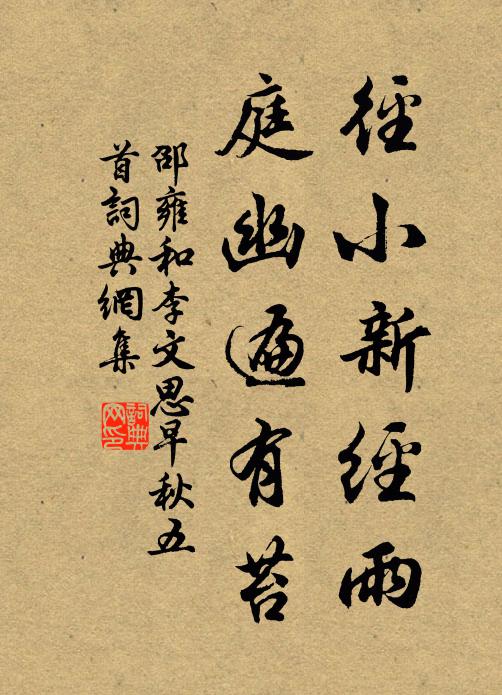 徑小新經雨
庭幽遍有苔
邵雍和李文思早秋五
首詞典網集
詞典
网印